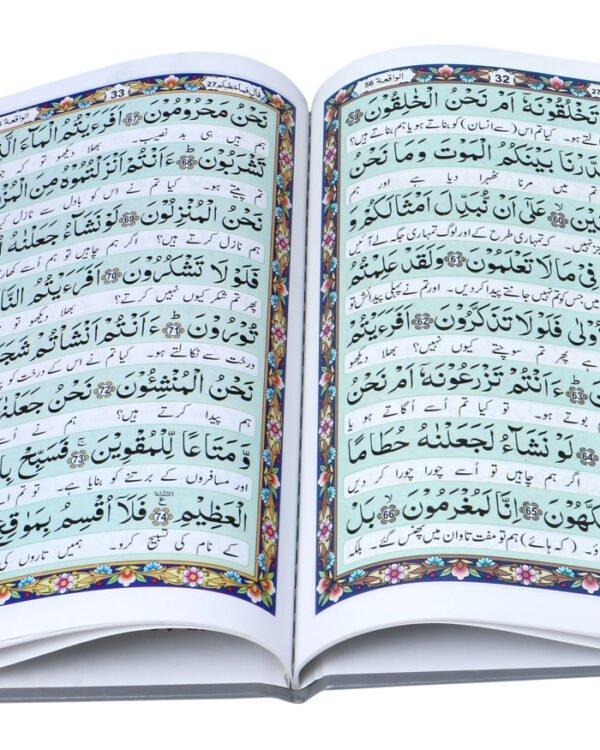 الواقعة ٥٦ 32 27
تَخْلُقُوْنَهٗۤ اَمْ نَحْنُ الْخٰلِقُوْنَ 59
ہو۔ کیا تم اس (سے انسان) کو بناتے ہو یا ہم بناتے ہیں؟
قَدَّرْنَا بَيْنَكُمُ الْمَوْتَ وَمَا نَحْنُ
تم میں مرنا ٹھہرا دیا ہے اور ہم
60 عَلٰۤى اَنْ نُّبَدِّلَ اَمْثَالَكُمْ وَ
نہیں۔ کہ تمہاری طرح کے اور لوگ تمہاری جگہ لے آئیں
فِيْ مَا لَا تَعْلَمُوْنَ 61 وَلَقَدْ عَلِمْتُمُ
میں جس کو تم نہیں جانتے پیدا کر دیں۔ اور تم نے پہلی پیدائش تو
فَلَوْلَا تَذَكَّرُوْنَ 62 اَفَرَءَيْتُمْ
پھر تم سوچتے کیوں نہیں؟ بھلا دیکھو
63 ءَاَنْتُمْ تَزْرَعُوْنَهٗۤ اَمْ نَحْنُ
بوتے ہو۔ تو کیا تم اُسے اُگاتے ہو یا
64 لَوْ نَشَآءُ لَجَعَلْنٰهُ حُطَامًا
اگر ہم چاہیں تو اُسے چورا چورا کر دیں
65 اِنَّا لَمُغْرَمُوْنَ 66 بَلْ
(کہ ہائے) ہم تو مفت تاوان میں پھنس گئے۔ بلکہ
قال فما خطبكم 27 33 الواقعة
نَحْنُ مَحْرُوْمُوْنَ 67 اَفَرَءَيْتُمُ الْمَآءَ
ہم ہیں ہی بد نصیب۔ بھلا دیکھو تو کہ
تَشْرَبُوْنَ 68 ءَاَنْتُمْ اَنْزَلْتُمُوْهُ مِنَ
تم پیتے ہو۔ کیا تم نے اس کو بادل سے نازل
نَحْنُ الْمُنْزِلُوْنَ 69 لَوْ نَشَآءُ جَعَلْنٰهُ
ہم نازل کرتے ہیں؟ اگر ہم چاہیں تو ہم اُسے
فَلَوْلَا تَشْكُرُوْنَ 70 اَفَرَءَيْتُمُ
پھر تم شکر کیوں نہیں کرتے؟ بھلا دیکھو تو
تُوْرُوْنَ 71 ءَاَنْتُمْ اَنْشَاْتُمْ
درخت سے نکالتے ہو۔ کیا تم نے اس کے درخت کو
نَحْنُ الْمُنْشِـُٔوْنَ 72 نَحْنُ
ہم پیدا کرتے ہیں؟ ہم نے اُسے
وَمَتَاعًا لِّلْمُقْوِيْنَ 73 فَسَبِّحْ
اور مسافروں کے برتنے کو بنایا ہے۔ تو تم
الْعَظِيْمِ 74 فَلَاۤ اُقْسِمُ بِمَوٰقِعِ
کے نام کی تسبیح کرو۔ ہمیں تاروں کی